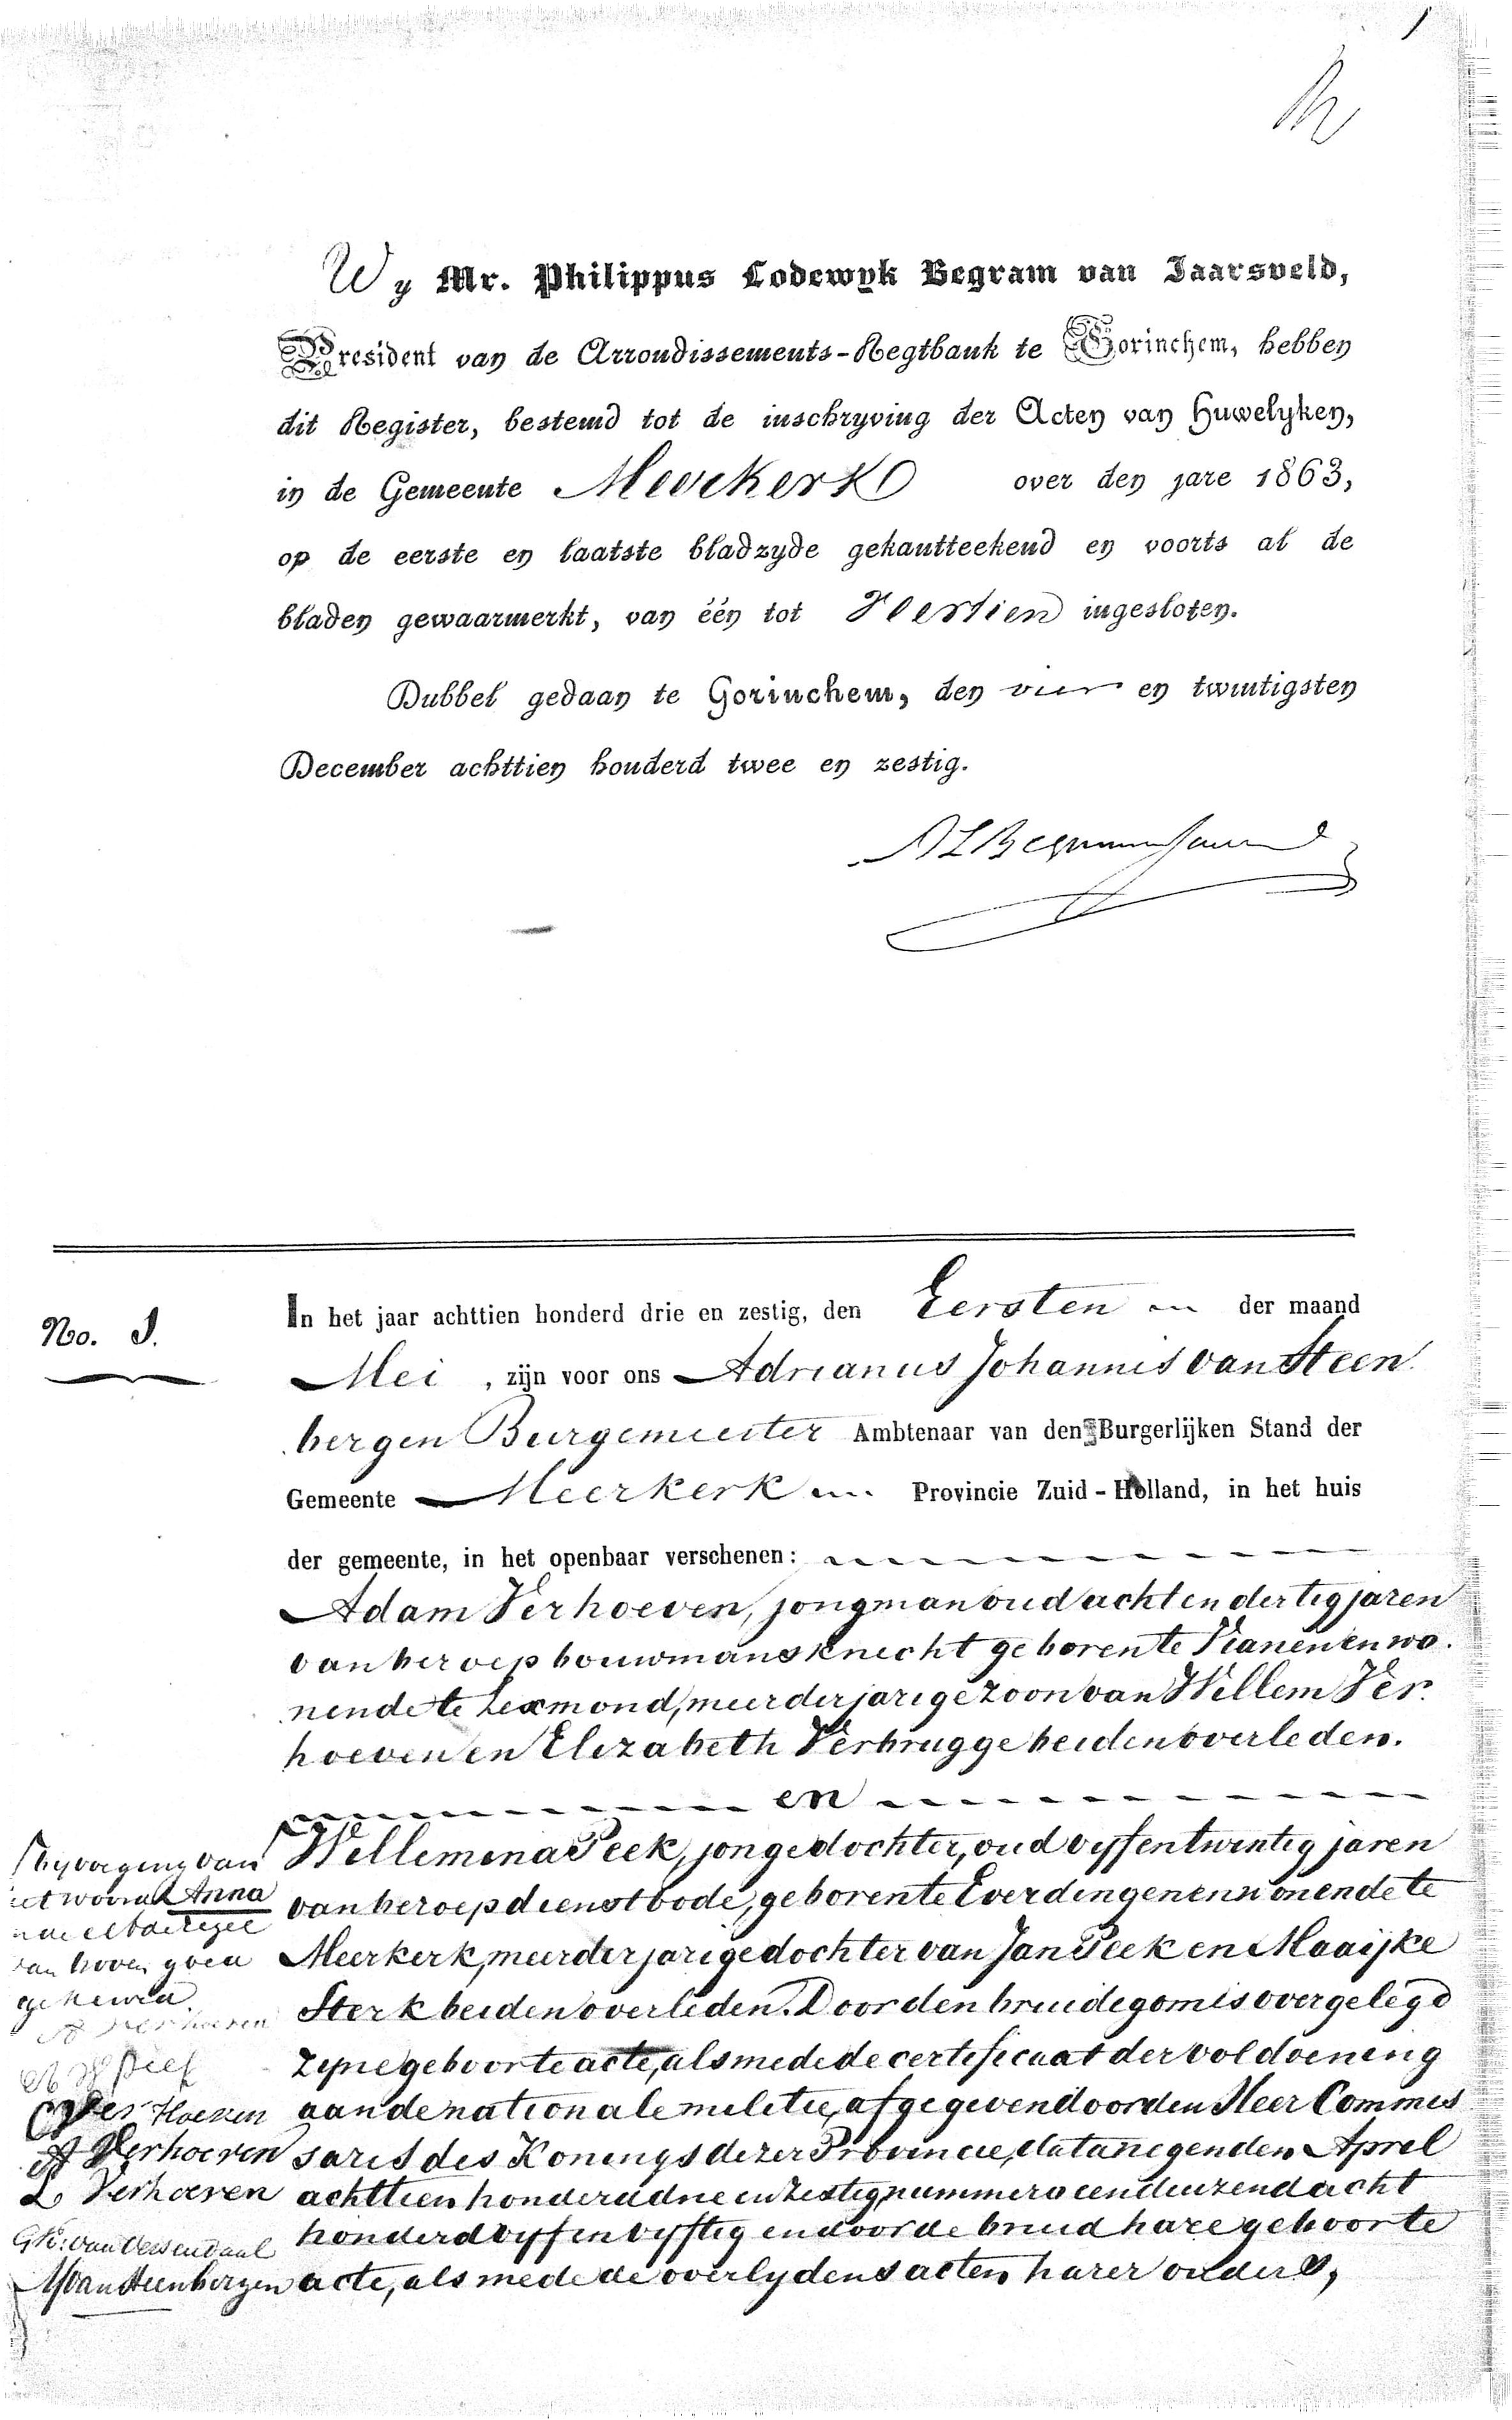 1
Wy Mr. Philippus Lodewyk Begram van Jaarsveld,
President van de Arrondissements-Regtbank te Gorinchem, hebben
dit Register, bestemd tot de inschryving der Acten van Huwelyken,
in de Gemeente Meerkerk over den jare 1863,
op de eerste en laatste bladzyde gekantteekend en voorts al de
bladen gewaarmerkt, van één tot Veertien ingesloten.
Dubbel gedaan te Gorinchem, den vier en twintigsten
December achttien honderd twee en zestig.
No. 1.
In het jaar achttien honderd drie en zestig, den Eersten der maand
Mei, zijn voor ons Adrianus Johannis van Steen
bergen Burgemeester Ambtenaar van den Burgerlijken Stand der
Gemeente Meerkerk Provincie Zuid-Holland, in het huis
der gemeente, in het openbaar verschenen:
Adam Verhoeven, jongman oud acht en dertig jaren
van beroep bouwmansknecht geboren te Vianen en wo
nende te Lexmond, meerderjarige zoon van Willem Ver
hoeven en Elizabeth Verbrugge beiden overleden.
en
Willemina Peek, jongedochter, oud vyf en twintig jaren
van beroep dienstbode, geboren te Everdingen en wonende te
Meerkerk, meerderjarige dochter van Jan Peek en Maaijke
Sterk beiden overleden. Door den bruidegom is overgelegd
zyne geboorte acte, alsmede de certificaat der voldoening
aan de nationale militie, afgegeven door den Heer Commis
saris des Konings dezer Provincie, datanegenden April
achttien honderd drie en zestig, nummero een duizend acht
honderd vyf en vyftig en door de bruid hare geboorte
acte, alsmede de overlydens acten harer ouders,
Byvoeging van
het woord Anna
van boven goed
gekeurd.
A Verhoeven
A W Peek
C Verhoeven
A Verhoeven
L. Verhoeven
AJ van Steenbergen